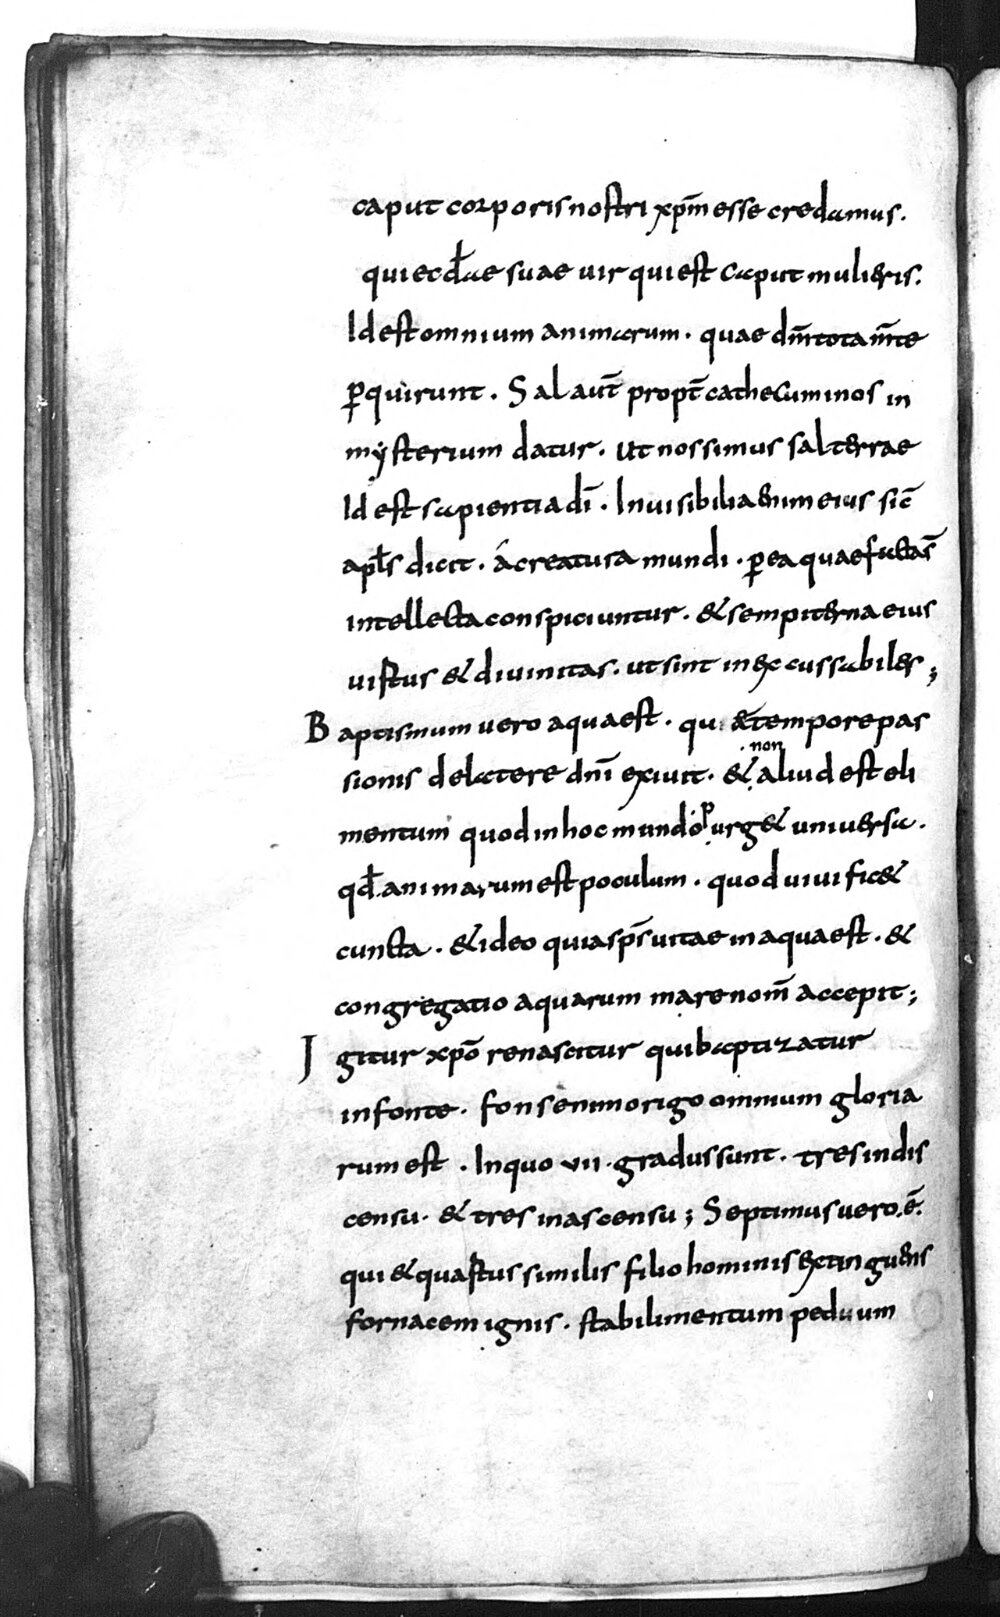 caput corporis nostri xp̄m esse credamus.
qui eccl̄ae suae uir qui est caput mulieris.
Id est omnium animarum. quae dm̄ tota m̄te
ꝑquirunt. Sal aut̄ propt̄ cathecuminos in
mysterium datur. ut nossimus sal terrae
Id est sapientia dī. Inuisibilia enim eius sic̄
apl̄s dicit. á creatura mundi. ꝑ ea quae facta s̄
intellecta conspiciuntur. & sempiterna eius
uirtus & diuinitas. ut sint inexcussabiles;
Baptismum uero aqua est. qu& tempore pas
sionis de latere dnī exiuit. & non aliud est eli
mentum quod in hoc mundo purg& uniuersa.
qd̄ animarum est poculum. quod uiuific&
cuncta. & ideo quia sp̄s uitae in aqua est. &
congregatio aquarum mare nom̄ accepit;
Igitur xpō renascitur qui baptizatur
in fonte. fons enim origo omnium gloria
rum est. In quo vii. gradus sunt. tres in dis
censu. & tres in ascensu; Septimus uero .ē.
qui & quartus similis filio hominis extinguens
fornacem ignis. stabilimentum peduum